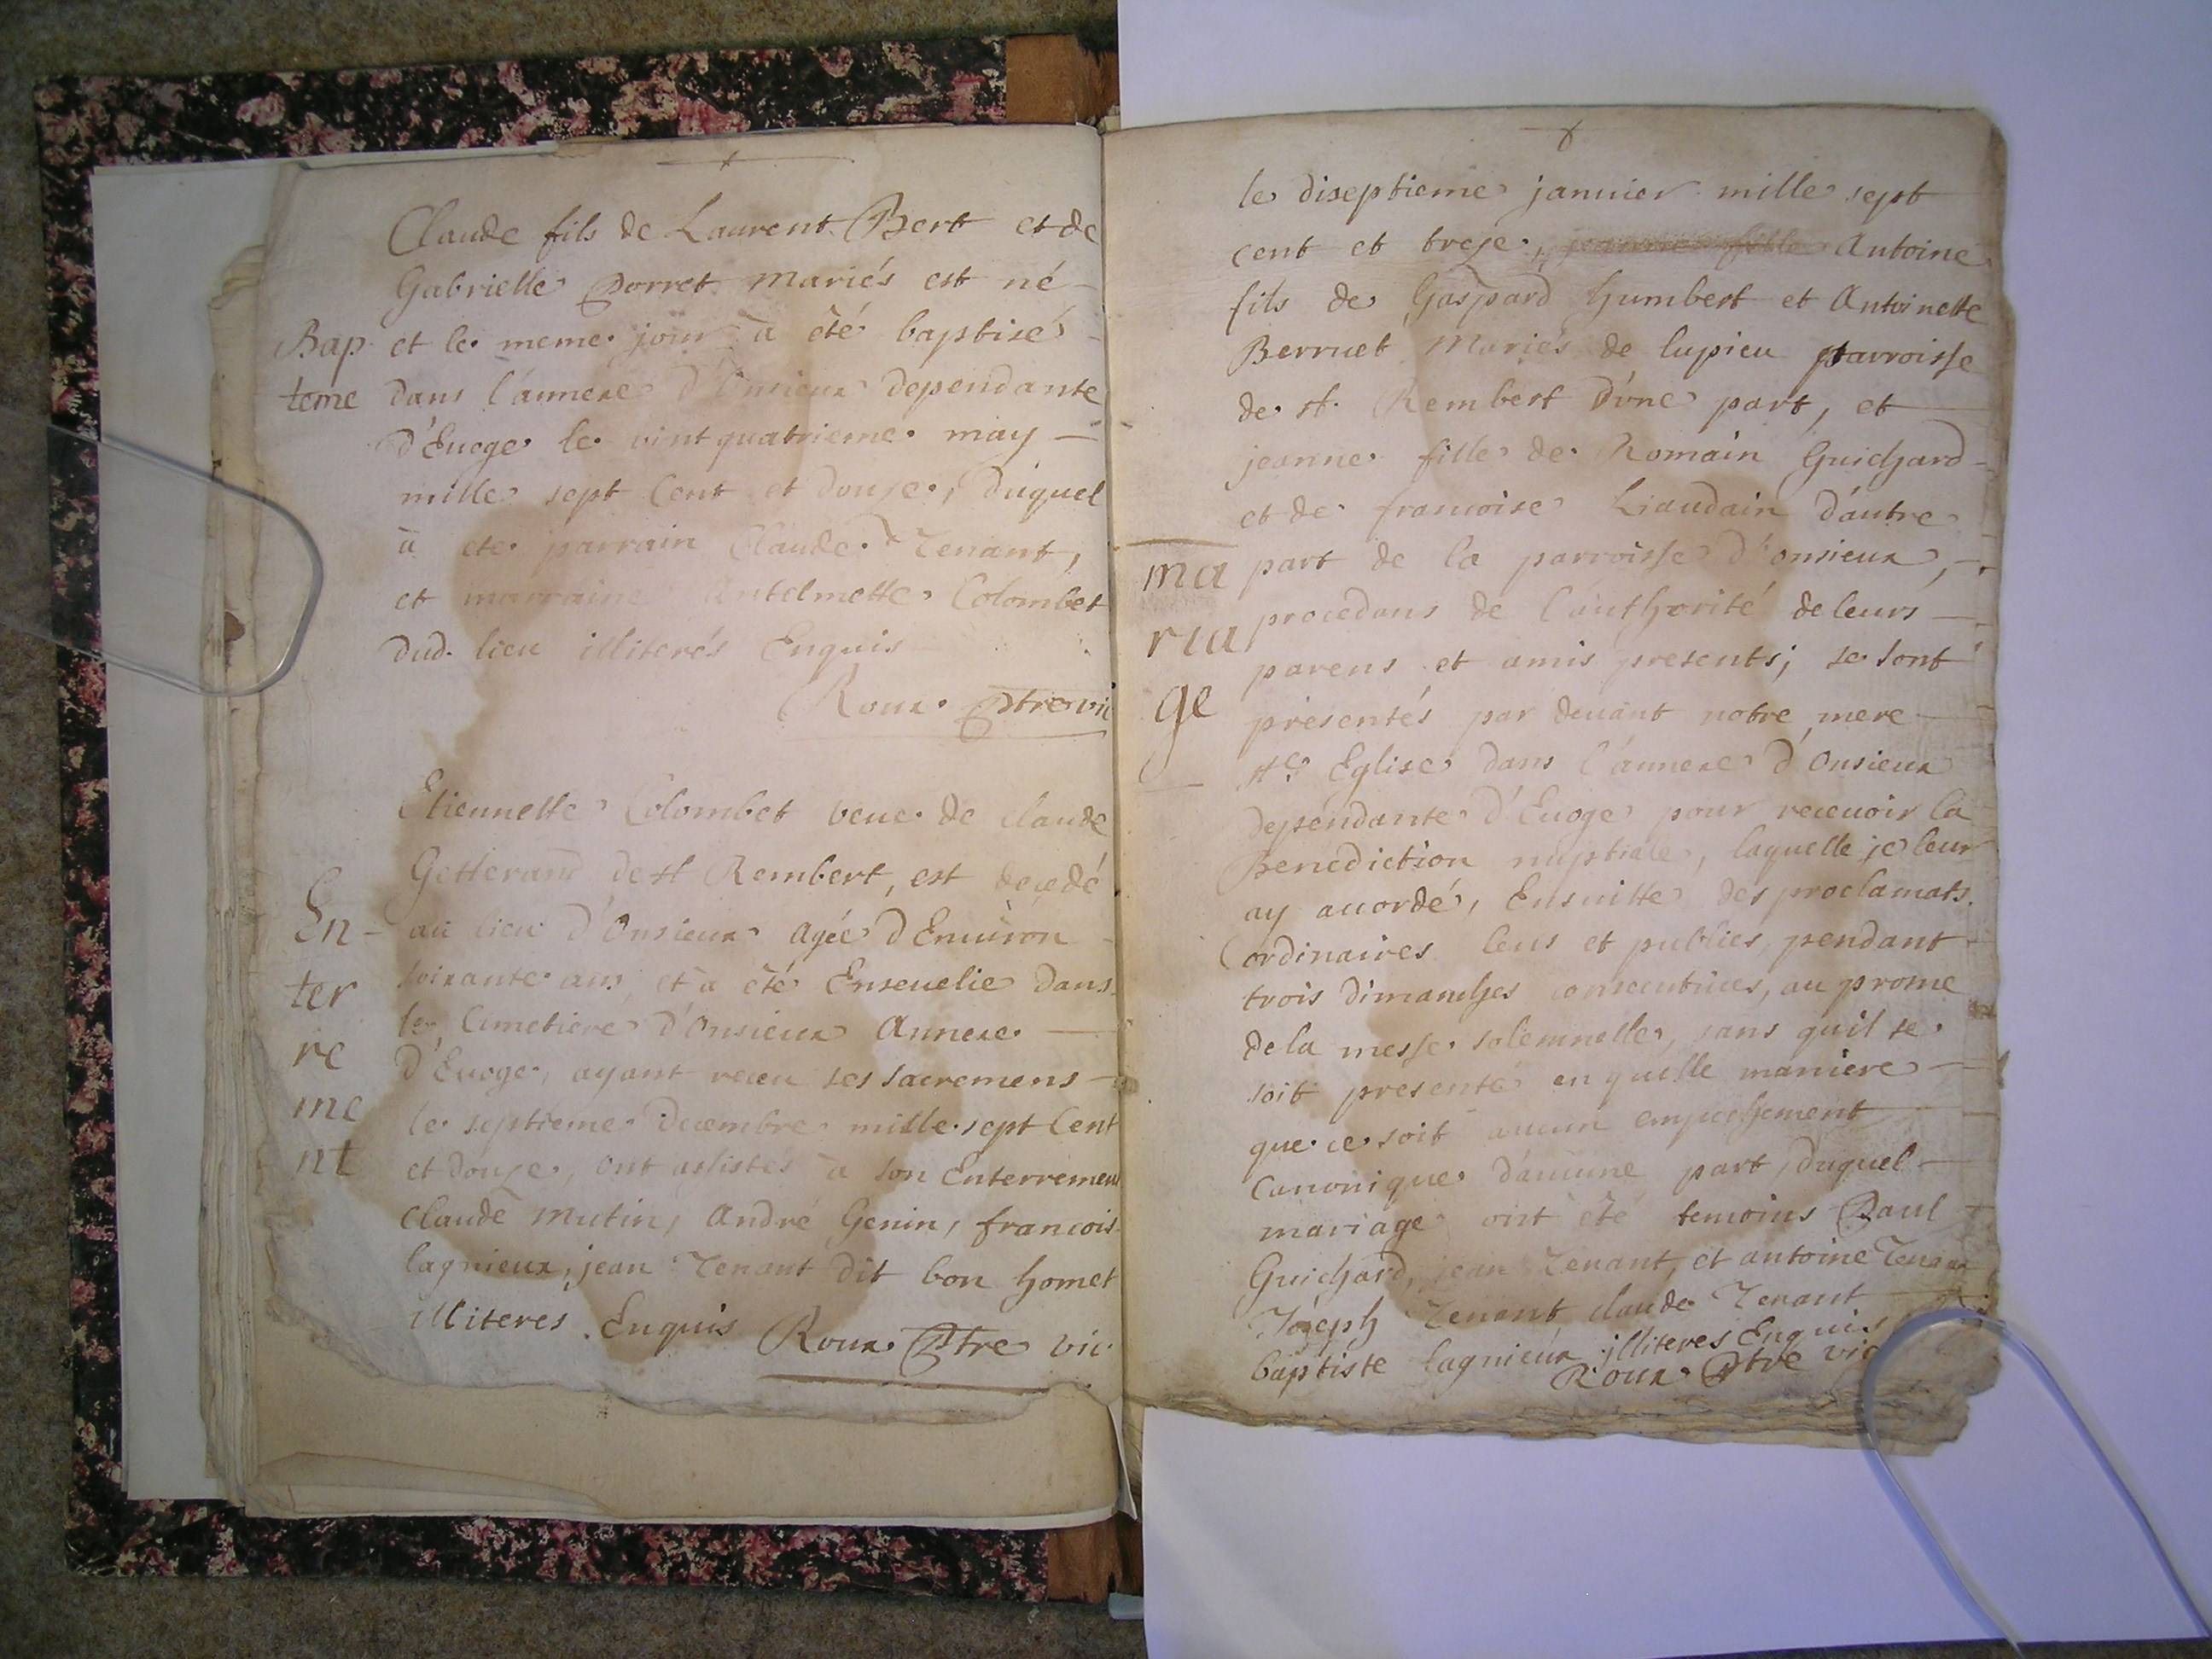 Claude fils de Laurent Bert et de
Gabrielle Porret mariés est né
Bap
et le meme jour à été baptisé
teme
dans l'annexe d'Onsieux dependante
d'Euoge le vint quatrieme may
mille sept Cent et douse, duquel
à ete parrain Claude Tenant,
et marraine Antelmette Colombet
dud. lieu illiterés Enquis
Roux Ptre vic
Etiennette Colombet veue de claude
Getterand de st Rembert, est decedé
En-
au lieu d'Onsieux Agée d'Enuiron
ter
soixante ans, et à été Enseuelie dans
re
le Cimetiere d'Onsieux Annexe
me
d'Euoge, ayant receu ses sacremens
nt
le septieme decembre mille sept Cent
et douse, ont assistés à son Enterrement
Claude mutin, André Genin, francois
lagnieux, jean Tenant dit bon homet
illiteres Enquis Roux Ptre vic
le diseptieme januier mille sept
cent et trese, Antoine
fils de Gaspard humbert et Antoinette
Berruet Mariés de lupieu parroisse
de st. Rembert d'vne part, et
jeanne fille de Romain Guichard
et de francoise Liaudain d'autre
ma
part de la parroisse d'onsieux,
ria
procedans de l'authorité de leurs
parens et amis presents; se sont
ge
presentés par deuant notre mere
ste Eglise dans l'annexe d'Onsieux
dependante d'Euoge pour receuoir la
Benediction nuptiale, laquelle je leur
ay accordé, Ensuitte des proclamats
ordinaires leus et publies, pendant
trois dimanches consecutiues, au prome
de la messe solemnelle, sans quil se
soit presenté en quelle maniere
que ce soit aucun empechement
Canonique d'aucune part, duquel
mariage ont été temoins Paul
Guichard, jean Tenant, et antoine Tenant
Joseph Tenant claude Tenant
baptiste lagnieux illiteres Enquis
Roux Ptre vic